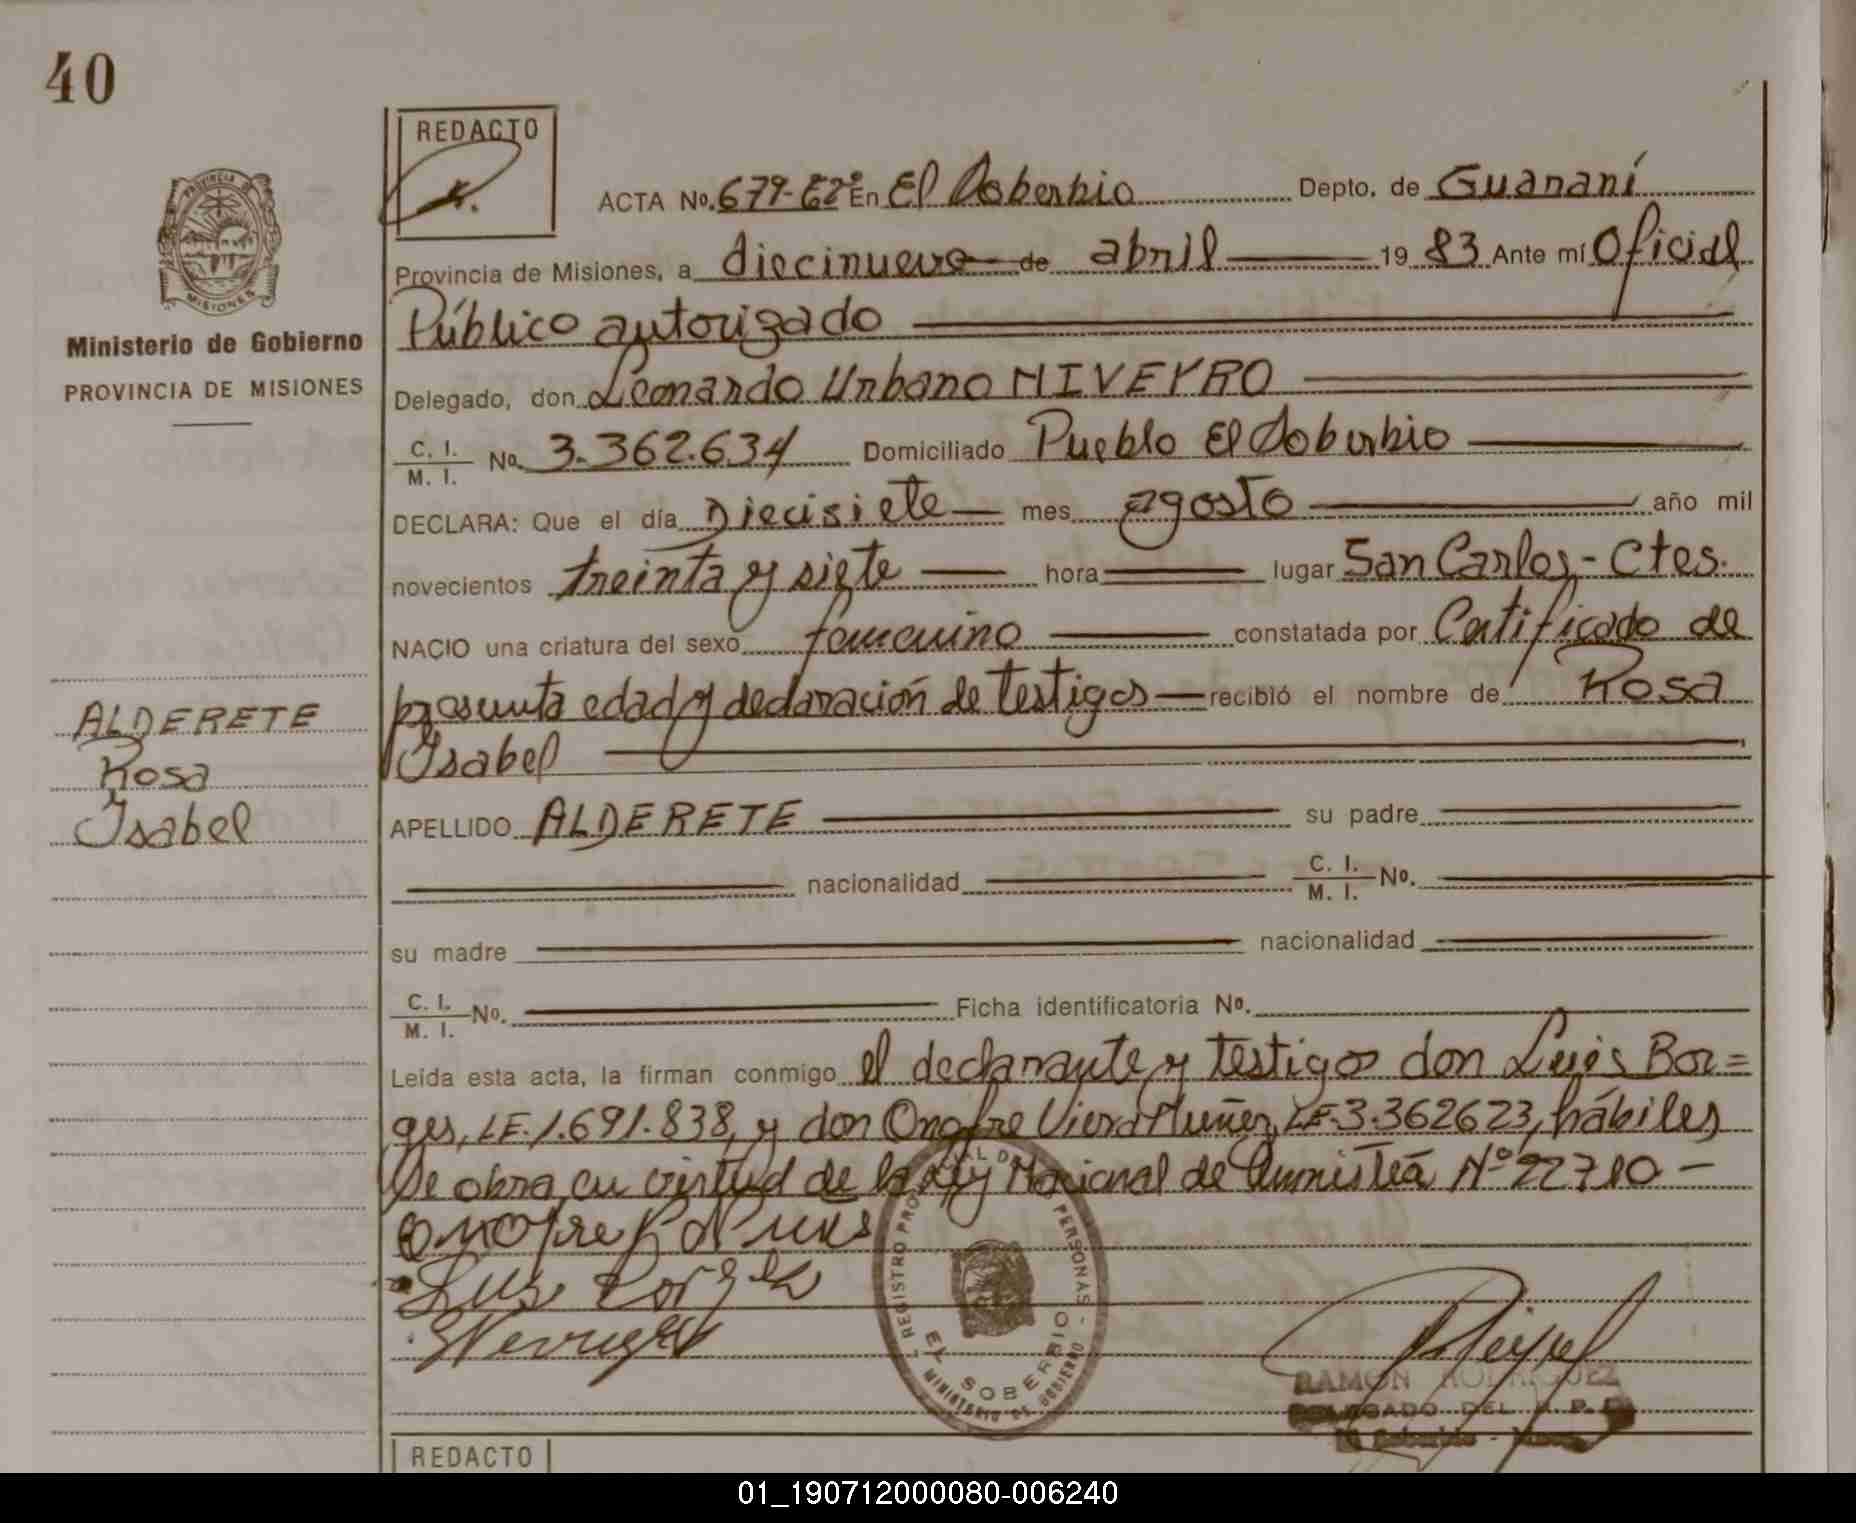 40
REDACTO
PROVINCIA DE
MISIONES
Ministerio de Gobierno
PROVINCIA DE MISIONES
ALDERETE
Rosa
Ysabel
ACTA No. 679-E2º En El Soberbio Depto. de Guaraní
Provincia de Misiones, a diecinueve de abril 19 83 Ante mí Oficial
Público autorizado
Delegado, don Leonardo Urbano NIVEYRO
C. I. / M. I. No. 3.362.634 Domiciliado Pueblo El Soberbio
DECLARA: Que el día Diecisiete mes agosto año mil
novecientos treinta y siete hora lugar San Carlos - Ctes.
NACIO una criatura del sexo femenino constatada por Certificado de
presunta edad y declaración de testigos recibió el nombre de Rosa
Ysabel
APELLIDO ALDERETE su padre
nacionalidad C. I. / M. I. No.
su madre nacionalidad
C. I. / M. I. No. Ficha identificatoria No.
Leída esta acta, la firman conmigo el declarante y testigos don Luis Bor=
ges, LE. 1.691.838, y don Onofre Viera Nuñez, LE. 3.362623, hábiles
Se obra en virtud de la Ley Nacional de Amnistía Nº 22710 -
Luis Borges
REGISTRO PERSONAS
EL SOBERBIO
MINISTERIO DE GOBIERNO
RAMON RODRIGUEZ
DELEGADO DEL R. P. P.
El Soberbio -
REDACTO
01_190712000080-006240